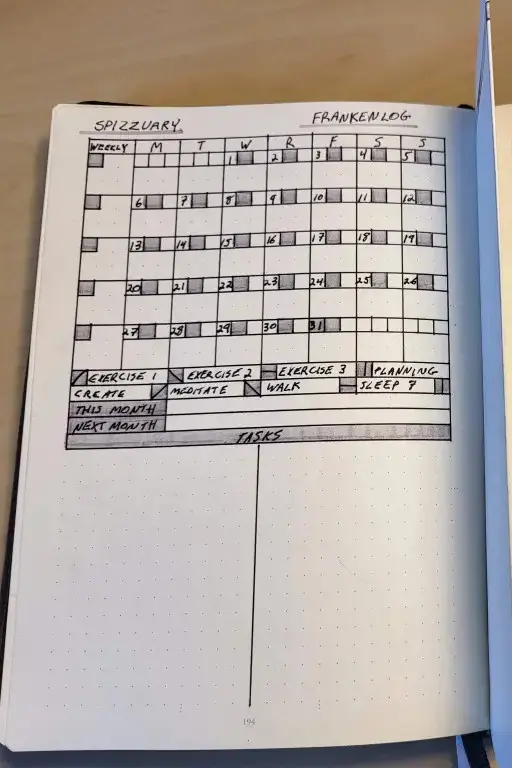 SPIZZUARY FRANKENLOG
WEEKLY M T W R F S S
1 2 3 4 5
6 7 8 9 10 11 12
13 14 15 16 17 18 19
20 21 22 23 24 25 26
27 28 29 30 31
EXERCISE 1 EXERCISE 2 EXERCISE 3 PLANNING
CREATE MEDITATE WALK SLEEP 7
THIS MONTH
NEXT MONTH
TASKS
194